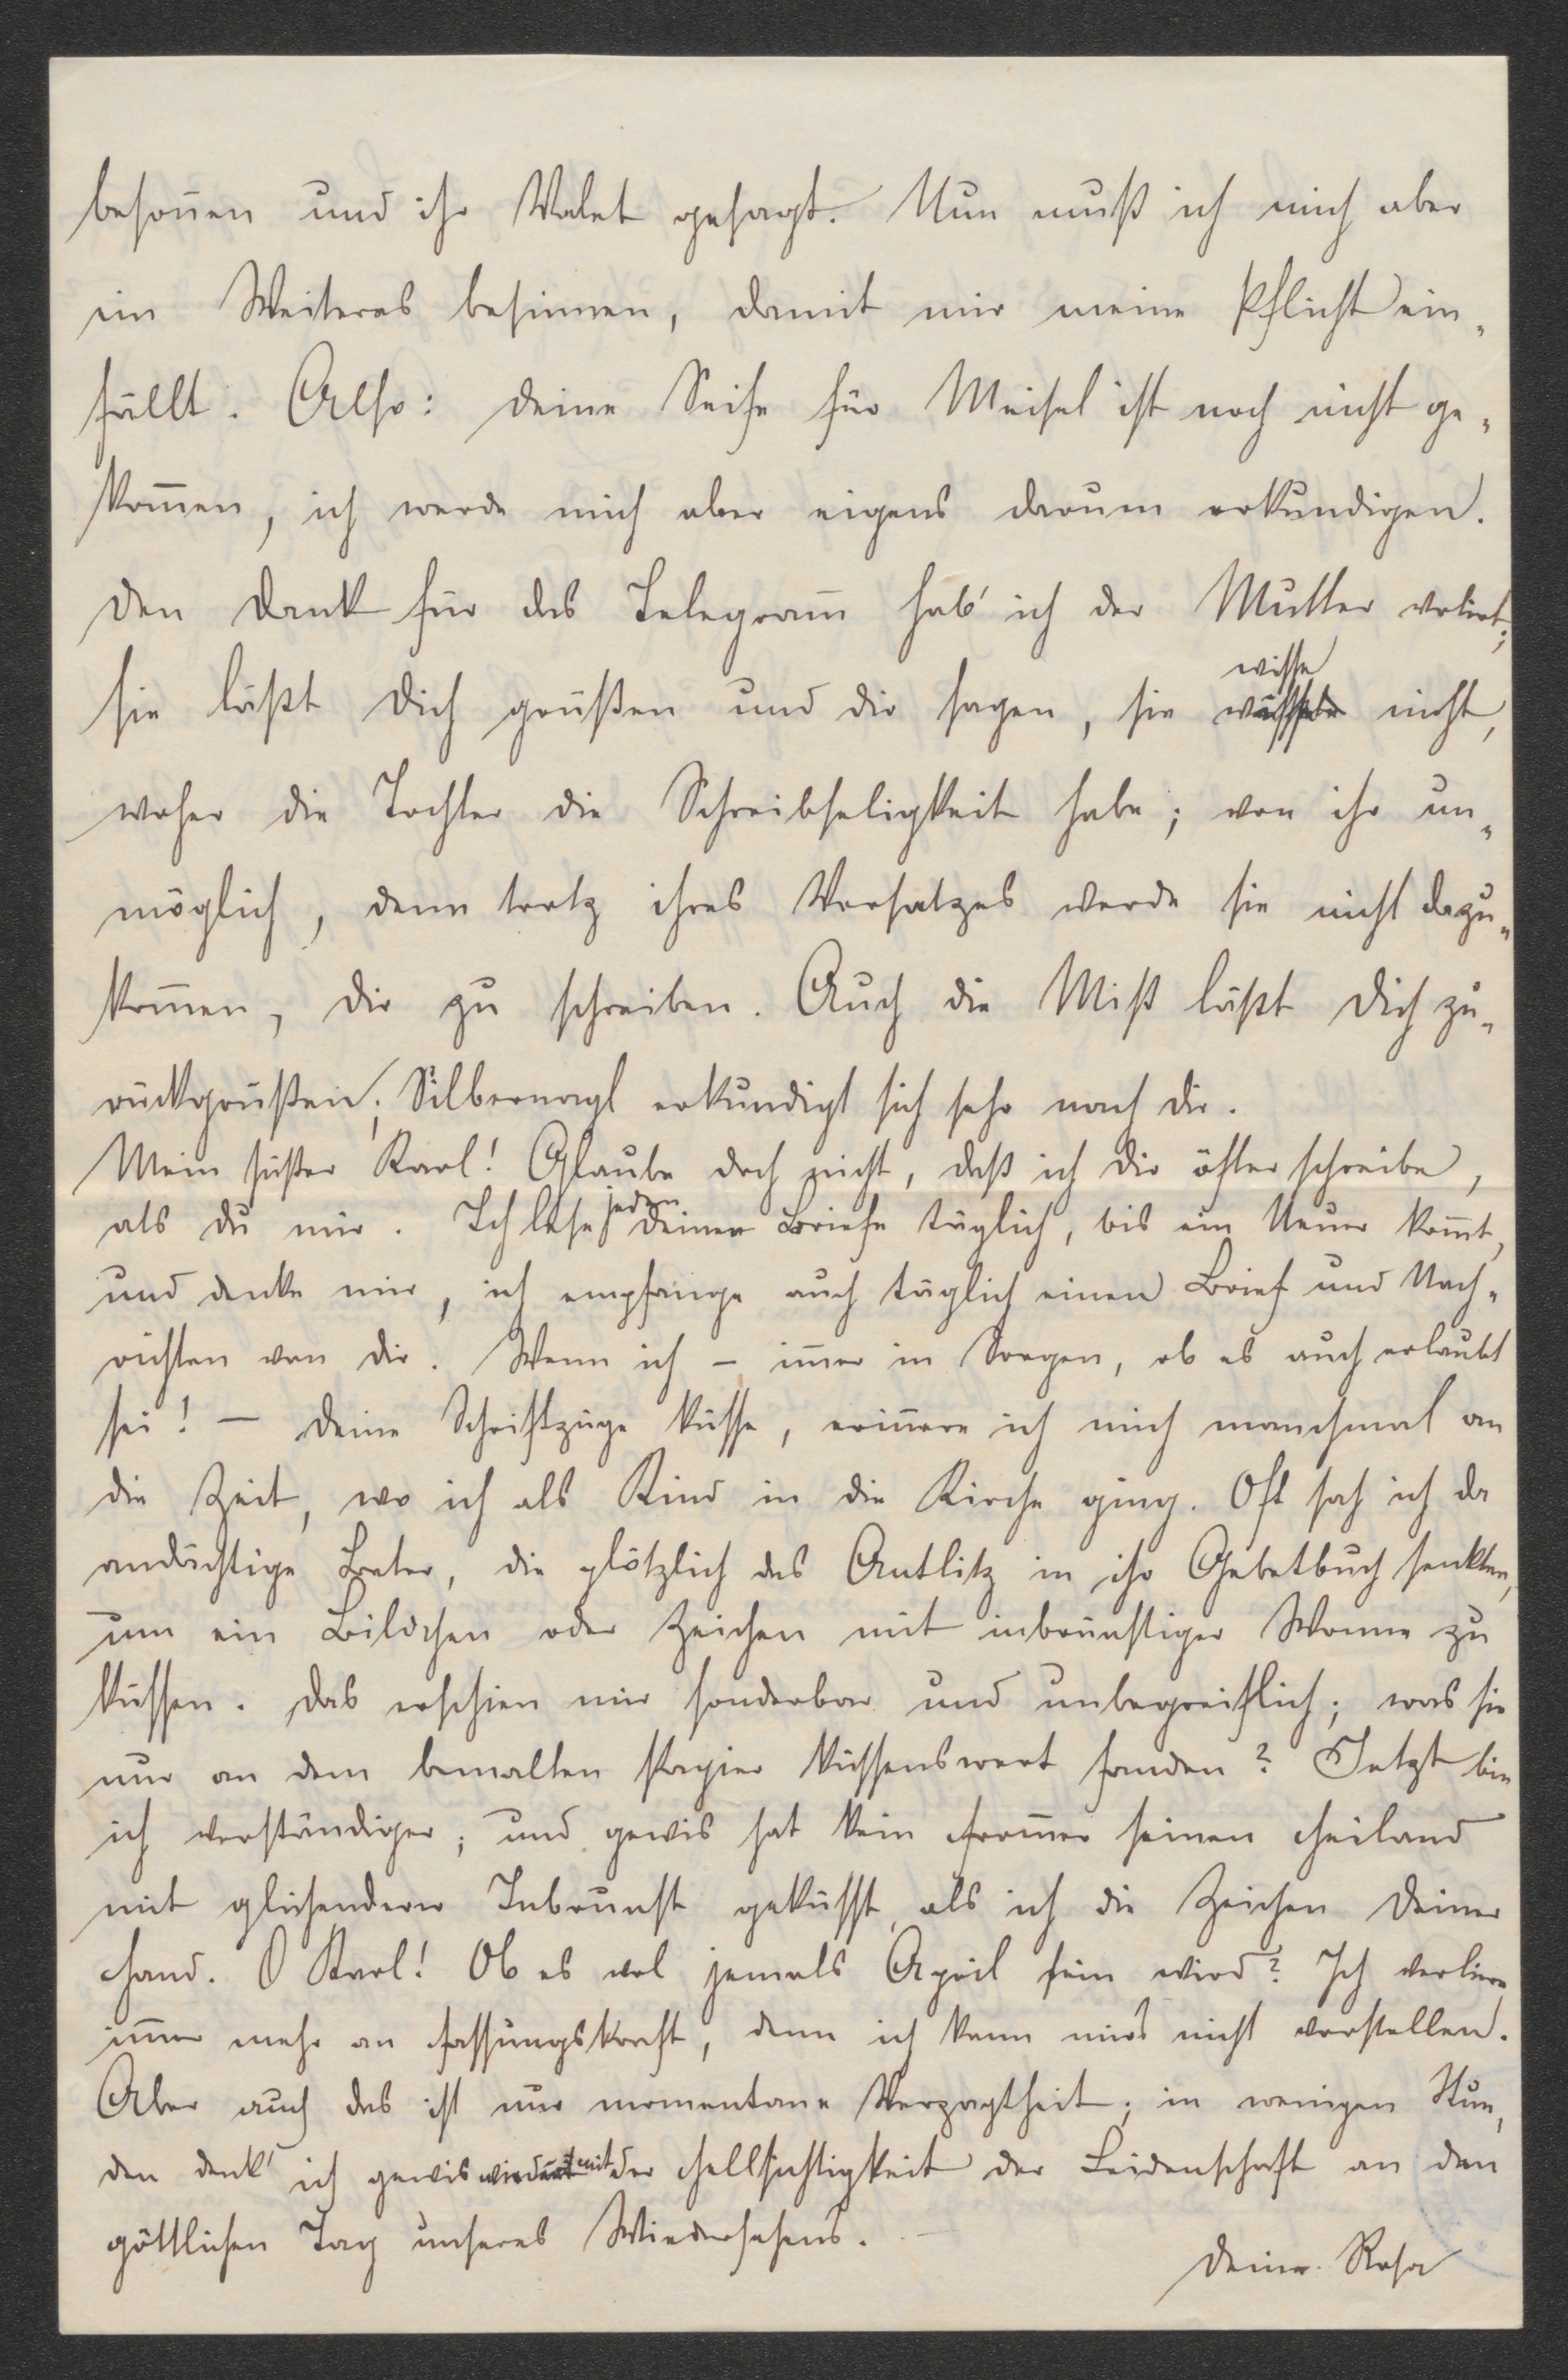 besoñen und ihr Valet gesagt. Nun muß ich mich aber
ein Weiteres besinnen, damit mir meine Pflicht ein-
fällt. Also: Deine Seife für Meisel ist noch nicht ge-
kom̃en, ich werde mich aber eigens darum erkundigen.
Den Dank für das Telegram̃ hab' ich der Mutter
sie läßt Dich grüßen und dir sagen, sie wisse nicht,
woher die Tochter die Schreibseligkeit habe; von ihr un-
möglich, denn trotz ihres Vorsatzes werde sie nicht dazu-
kom̃en, dir zu schreiben. Auch die Miß läßt Dich zu-
rückgrüßen; Silbernagl erkundigt sich sehr nach dir.
Mein süßer Karl! Glaube doch nicht, daß ich dir öfter schreibe,
als du mir. Ich lese jeden Deiner Briefe täglich, bis ein Neuer kom̃t,
und denke mir, ich empfange auch täglich einen Brief und Nach-
richten von dir. Wenn ich – im̃er in Sorgen, ob es auch erlaubt
sei! – Deine Schriftzüge küsse, eriñere ich mich manchmal an
die Zeit, wo ich als Kind in die Kirche ging. Oft sah ich da
andächtige Beter, die plötzlich das Antlitz in ihr Gebetbuch senkten,
um ein Bildchen oder Zeichen mit inbrünstiger Wonne zu
küssen. Das erschien mir sonderbar und unbegreiflich; was sie
nur an dem bemalten Papier küssenswert fanden? Jetzt bin
ich verständiger; und gewis hat kein From̃er seinen Heiland
mit glühenderer Inbrunst geküsst, als ich die Zeichen Deiner
Hand. O Karl! Ob es wol jemals April sein wird? Ich verliere
im̃er mehr an Fassungskraft, denn ich kann mirs nicht vorstellen.
Aber auch das ist nur momentane Verzagtheit; in wenigen Stun-
den denk' ich gewis wieder mit der Hellsichtigkeit der Leidenschaft an den
göttlichen Tag unseres Wiedersehens.
Deine Rosa